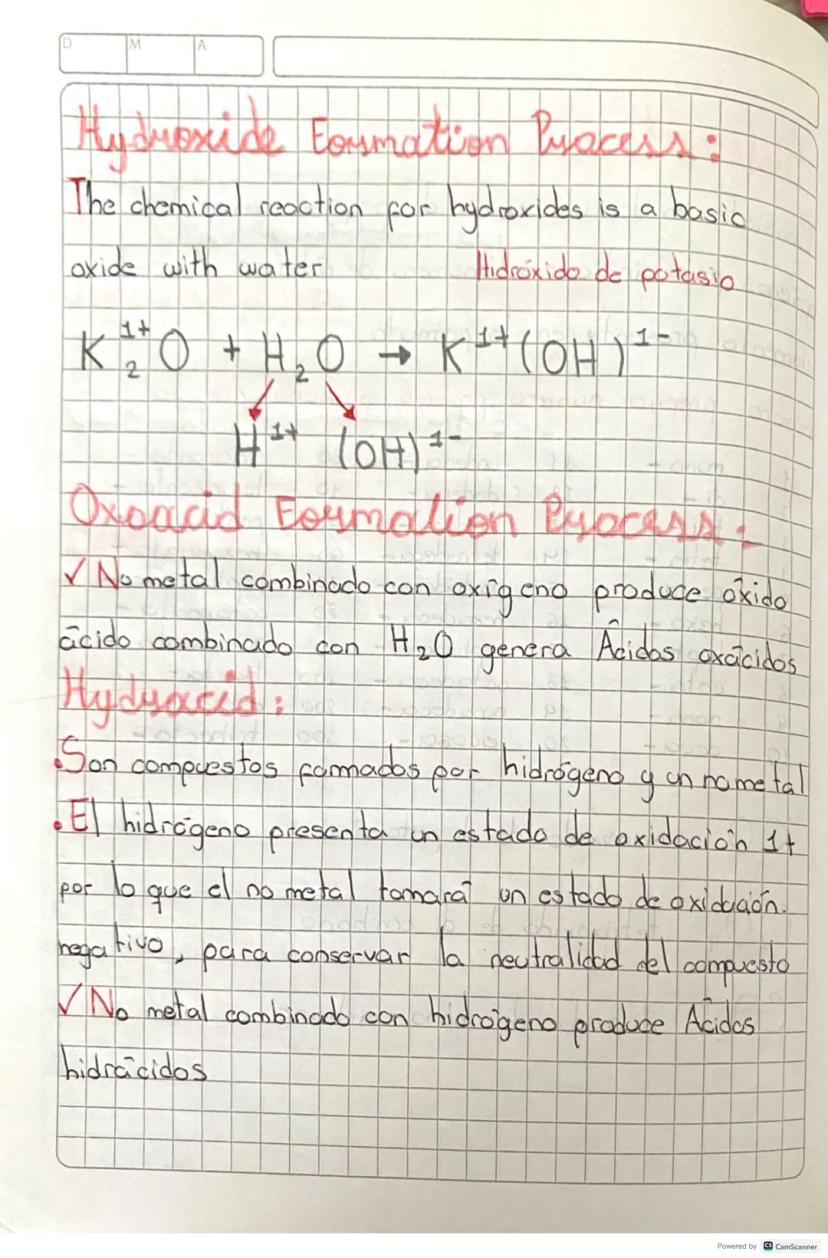 D M A
Hydroxide Formation Process:
The chemical reaction for hydroxides is a basic
oxide with water Hidróxido de potasio
K₂¹⁺O + H₂O → K¹⁺(OH)¹⁻
H¹⁺ (OH)¹⁻
Oxoacid Formation Process:
✓ No metal combinado con oxígeno produce óxido
ácido combinado con H₂O genera Ácidos oxácidos
Hydracid:
• Son compuestos formados por hidrógeno y un no metal
• El hidrógeno presenta un estado de oxidación 1+
por lo que el no metal tomará un estado de oxidación.
negativo, para conservar la neutralidad del compuesto
✓ No metal combinado con hidrógeno produce Ácidos
hidrácidos
Powered by CS CamScanner